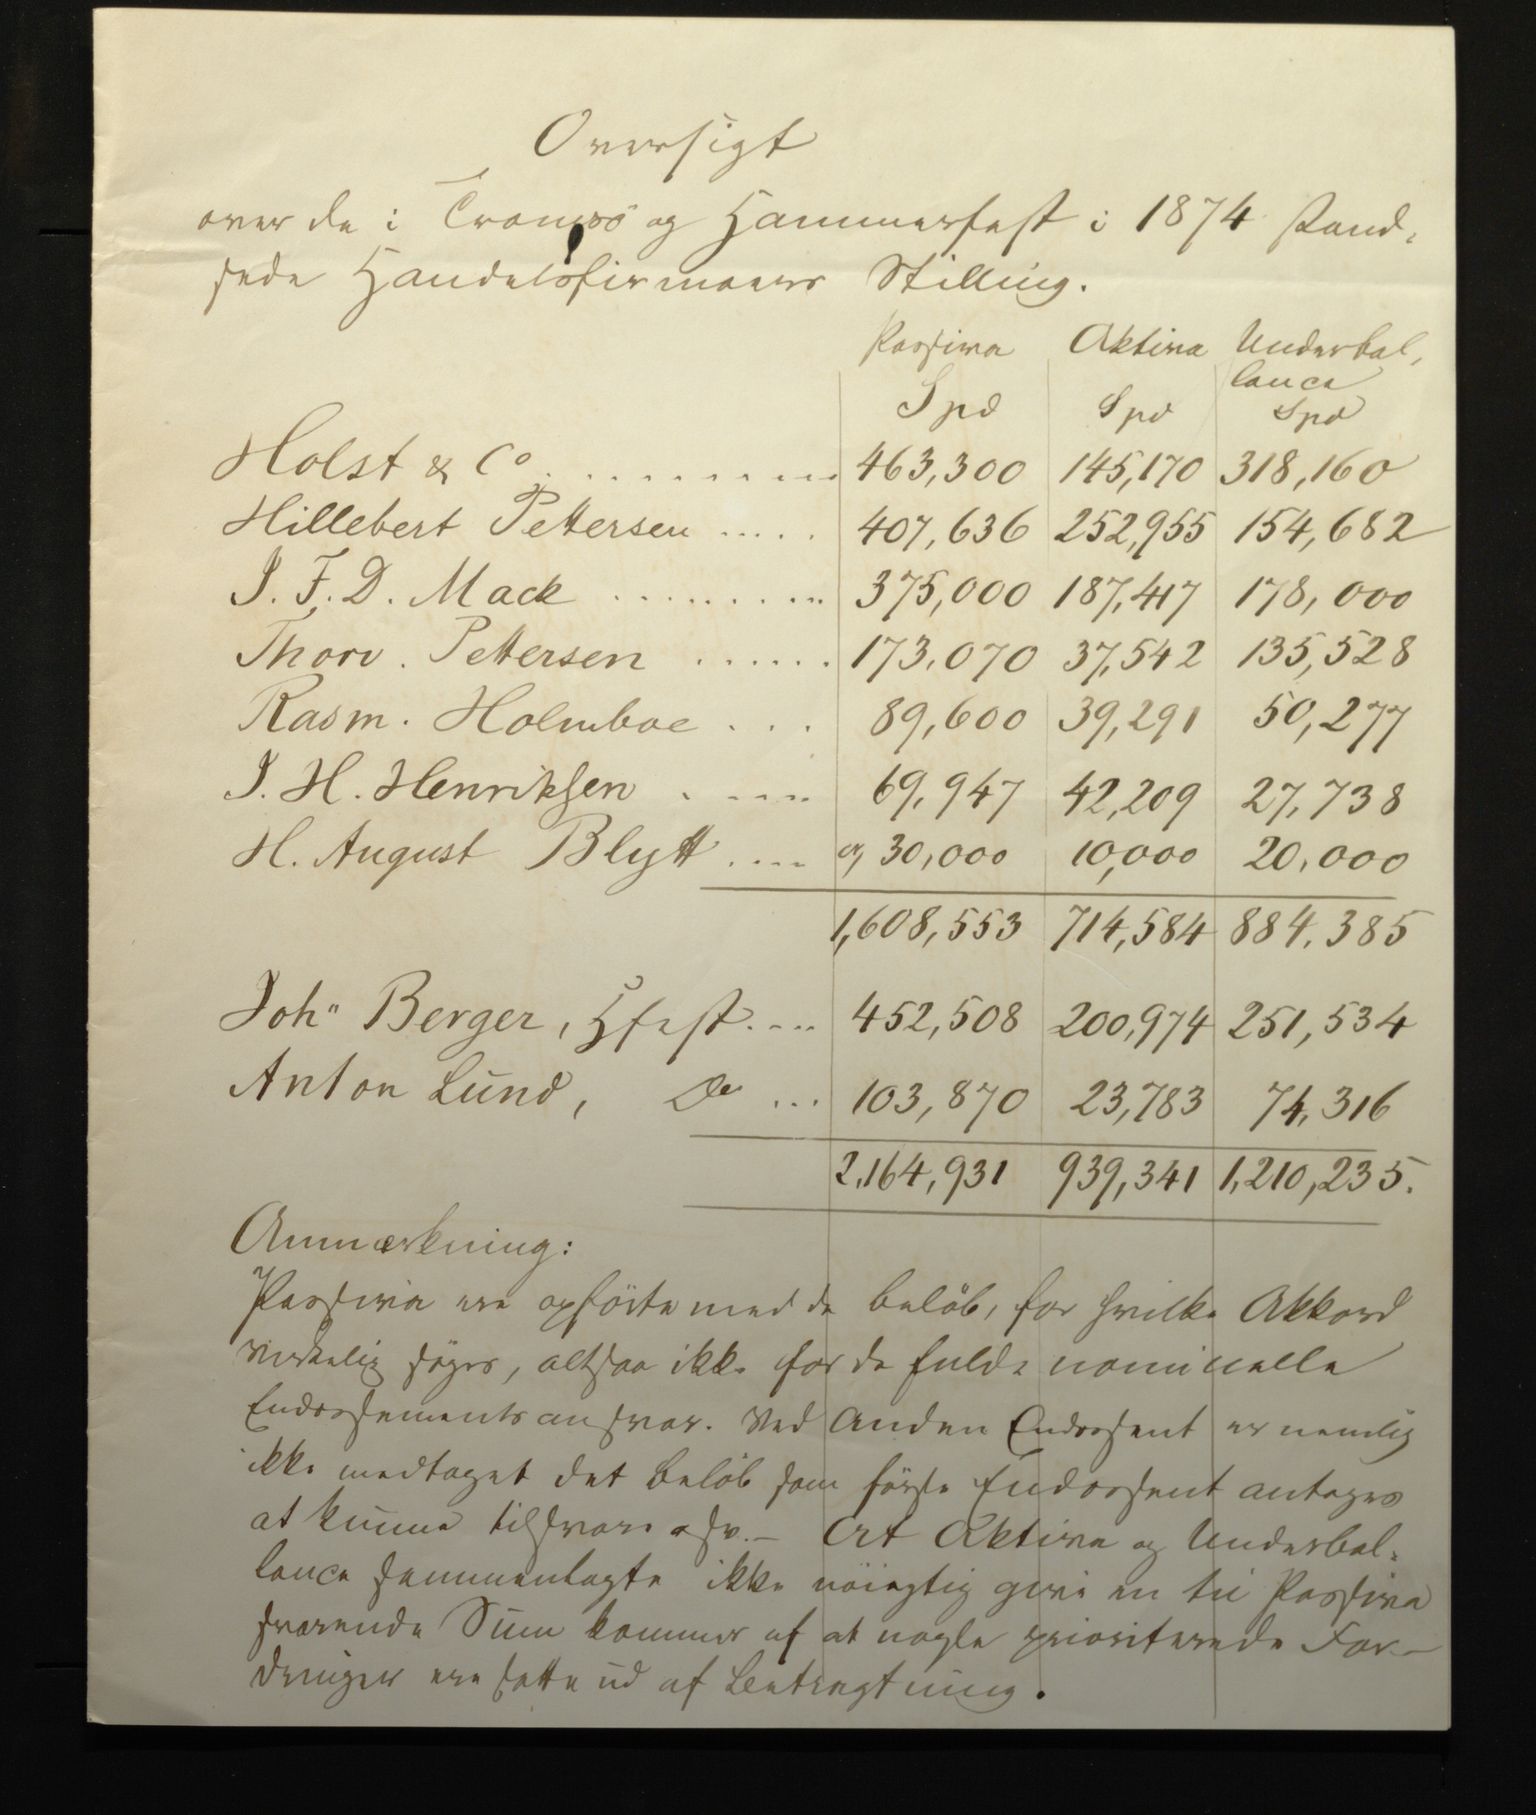 Oversigt
over de i Tromsö og Hammerfest i 1874 stand-
sede Handelsfirmaers Stilling.
Passiva Aktiva Underbal-
lance
Spd Spd Spd
Holst & Co. ......... 463,300 145,170 318,160
Hillebert Pettersen ..... 407,636 252,955 154,682
J. F. D. Mack ......... 375,000 187,417 178,000
Thorv. Pettersen ...... 173,070 37,542 135,528
Rasm. Holmboe ... 89,600 39,291 50,277
J. H. Henriksen .... 69,947 42,209 27,738
H. August Blytt .... 30,000 10,000 20,000
1,608,553 714,584 884,385
Johs Berger, Hfest.... 452,508 200,974 251,534
Anton Lund, Do ... 103,870 23,783 74,316
2,164,931 939,341 1,210,235.
Anmærkning:
Passiva ere opförte med de Belöb, for hvilke Akkord
virkelig söges, altsaa ikke for de fulde nominelle
Endossementsansvar. Ved Anden Endossent er nemlig
ikke medtaget det Belöb som förste Endossent antages
at kunne tilsvare osv. – At Aktiva og Underbal-
lance sammenlagte ikke nöiagtig give en til Passiva
svarende Sum kommer af at nogle prioriterede For-
dringer ere satte ud af Betragtning.